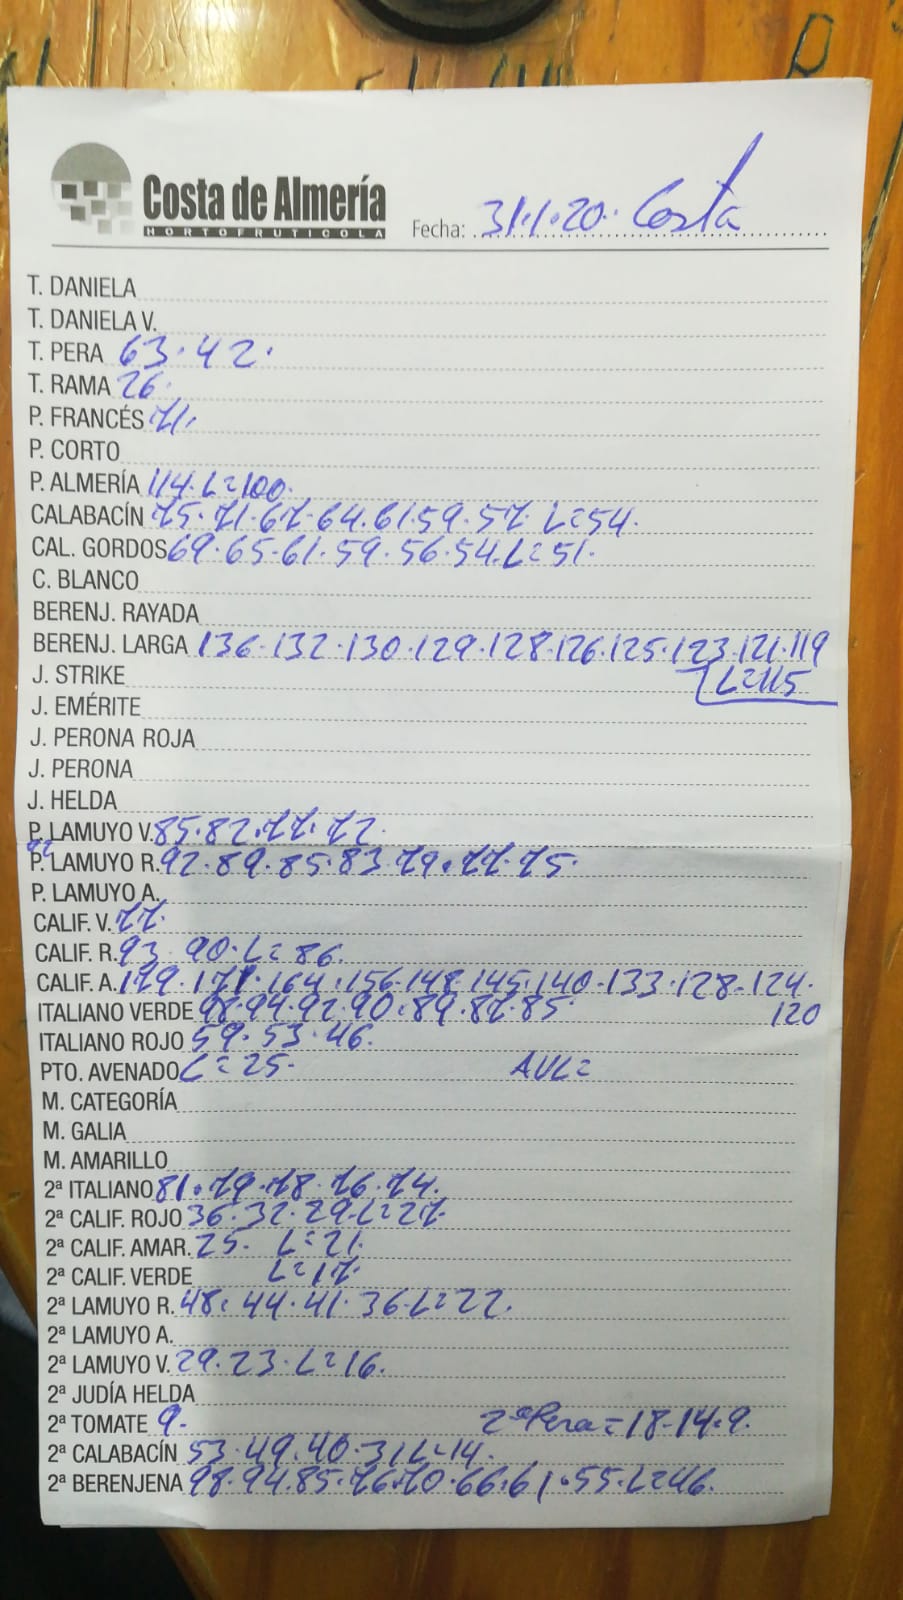 Costa de Almería
HORTOFRUTICOLA
Fecha: 31·1·20· Costa
T. DANIELA
T. DANIELA V.
T. PERA 63·42·
T. RAMA 26·
P. FRANCÉS 71·
P. CORTO
P. ALMERÍA 114·L=100·
CALABACÍN 75·71·67·64·61·59·57·L=54·
CAL. GORDOS 69·65·61·59·56·54·L=51·
C. BLANCO
BERENJ. RAYADA
BERENJ. LARGA 136·132·130·129·128·126·125·123·121·119
J. STRIKE L=115
J. EMÉRITE
J. PERONA ROJA
J. PERONA
J. HELDA
P. LAMUYO V. 85·82·77·72·
P. LAMUYO R. 92·89·85·83·79·77·75·
P. LAMUYO A.
CALIF. V. 77·
CALIF. R. 93·90·L=86·
CALIF. A. 171·164·156·148·145·140·133·128·124·
ITALIANO VERDE 98·94·92·90·89·87·85· 120
ITALIANO ROJO 59·53·46·
PTO. AVENADO L=25· AVL=
M. CATEGORÍA
M. GALIA
M. AMARILLO
2ª ITALIANO 81·79·78·76·74·
2ª CALIF. ROJO 36·32·29·L=27·
2ª CALIF. AMAR. 25· L=21·
2ª CALIF. VERDE L=17·
2ª LAMUYO R. 48·44·41·36·L=22·
2ª LAMUYO A.
2ª LAMUYO V. 29·23·L=16·
2ª JUDÍA HELDA
2ª TOMATE 9· 2ª Pera=18·14·9·
2ª CALABACÍN 53·49·40·31·L=14·
2ª BERENJENA 98·94·85·76·70·66·61·55·L=46·